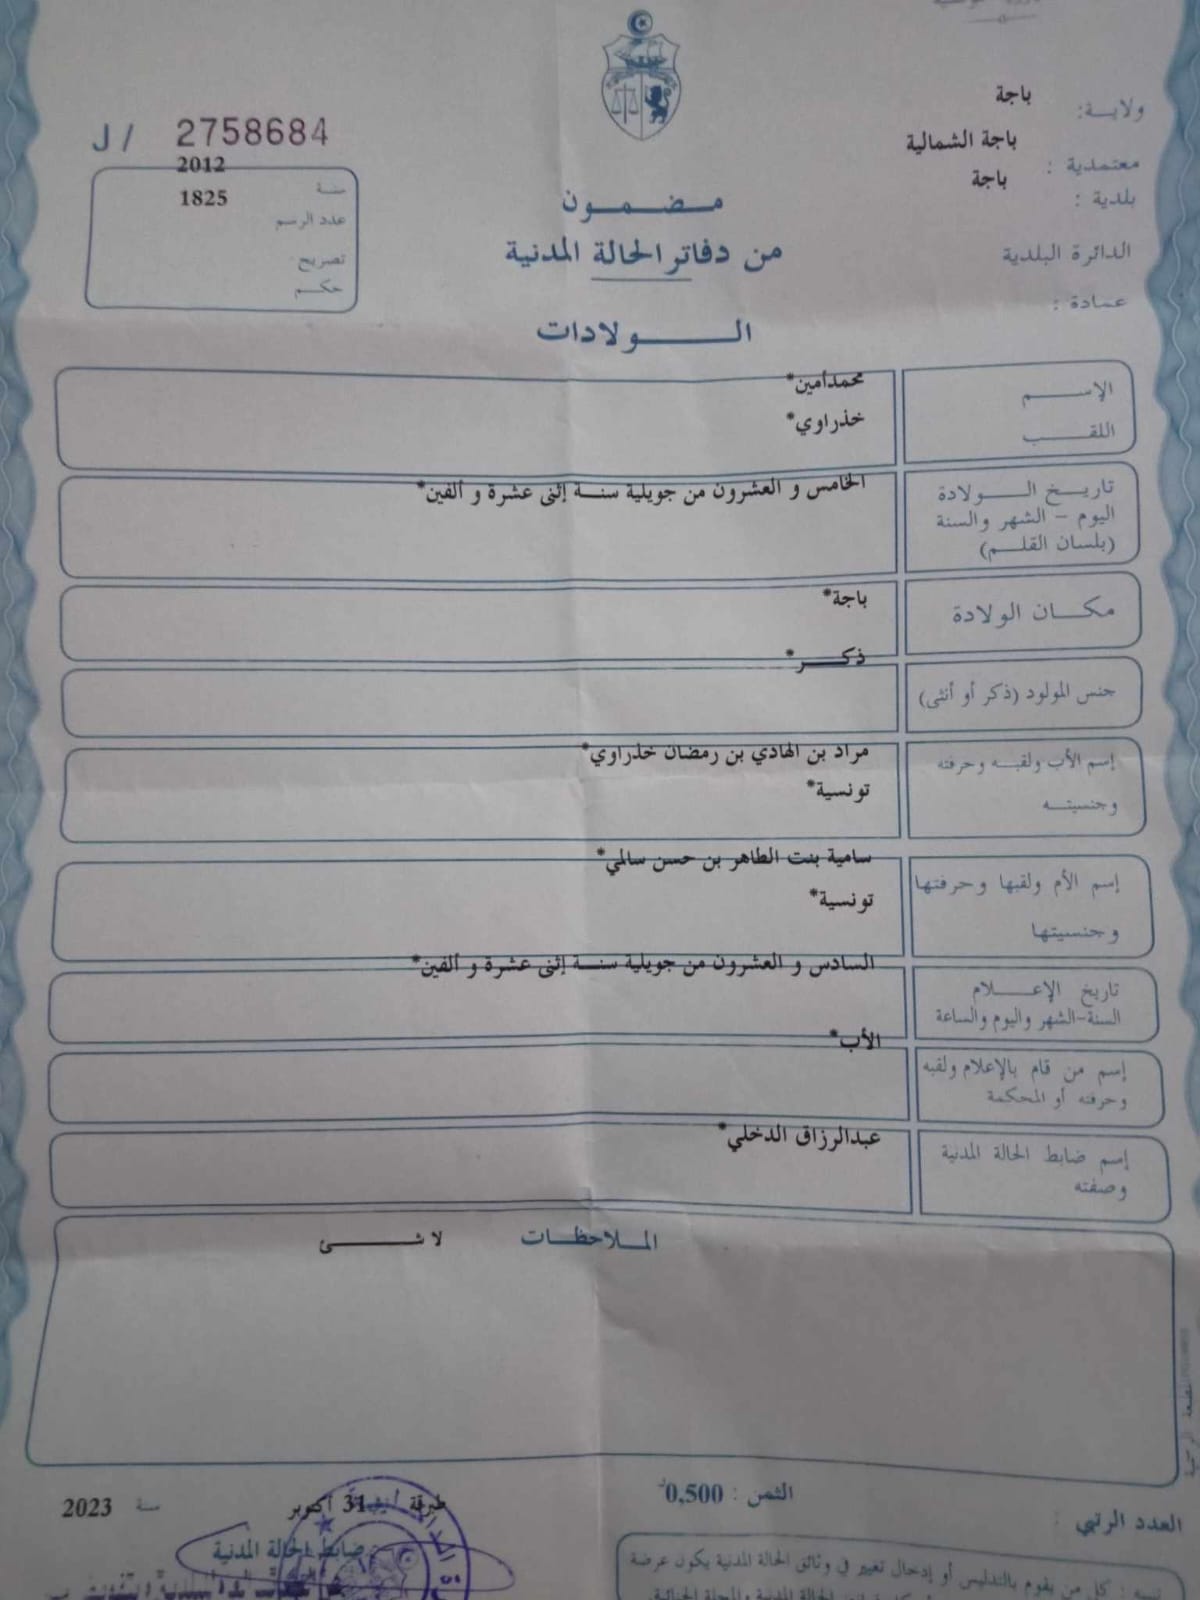 ولاية: باجة
معتمدية : باجة الشمالية
بلدية : باجة
الدائرة البلدية
عمادة :
J/ 2758684
سنة 2012
عدد الرسم 1825
تصريح
حكم
مضمون
من دفاتر الحالة المدنية
الولادات
الإسم محمدأمين*
اللقب خذراوي*
تاريخ الولادة الخامس و العشرون من جويلية سنة إثنى عشرة و ألفين*
اليوم - الشهر والسنة
(بلسان القلم)
مكان الولادة باجة*
جنس المولود (ذكر أو أنثى) ذكر*
إسم الأب ولقبه وحرفته مراد بن الهادي بن رمضان خذراوي*
وجنسيته تونسية*
إسم الأم ولقبها وحرفتها سامية بنت الطاهر بن حسن سالمي*
وجنسيتها تونسية*
تاريخ الإعلام السادس و العشرون من جويلية سنة إثنى عشرة و ألفين*
السنة-الشهر واليوم والساعة
إسم من قام بالإعلام ولقبه الأب*
وحرفته أو المحكمة
إسم ضابط الحالة المدنية عبدالرزاق الدخلي*
وصفته
الملاحظات لا شئ
الثمن : 0,500
العدد الرتبي :
طبرقة في 31 أكتوبر سنة 2023
ضابط الحالة المدنية
تنبيه : كل من يقوم بالتدليس أو إدخال تغيير في وثائق الحالة المدنية يكون عرضة
الحالة المدنية والمجلة الجنائية.